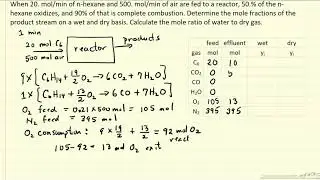 When 20. mol/min of n-hexane and 500. mol/min of air are fed to a reactor, 50.% of the n-
hexane oxidizes, and 90% of that is complete combustion. Determine the mole fractions of the
product stream on a wet and dry basis. Calculate the mole ratio of water to dry gas.
1 min
20 mol C₆
500 mol air
reactor
products
9 × [C₆H₁₄ + 19/2 O₂ → 6 CO₂ + 7H₂O]
1 × [C₆H₁₄ + 13/2 O₂ → 6 CO + 7H₂O]
O₂ feed = 0.21 × 500 mol = 105 mol
N₂ feed = 395 mol
O₂ consumption: 9 × 19/2 + 13/2 = 92 mol O₂
react
105 - 92 = 13 mol O₂ exit
feed effluent wet dry
gas mol mol yᵢ yᵢ
C₆ 20 10
CO₂ 0
CO 0
H₂O 0
O₂ 105 13
N₂ 395 395